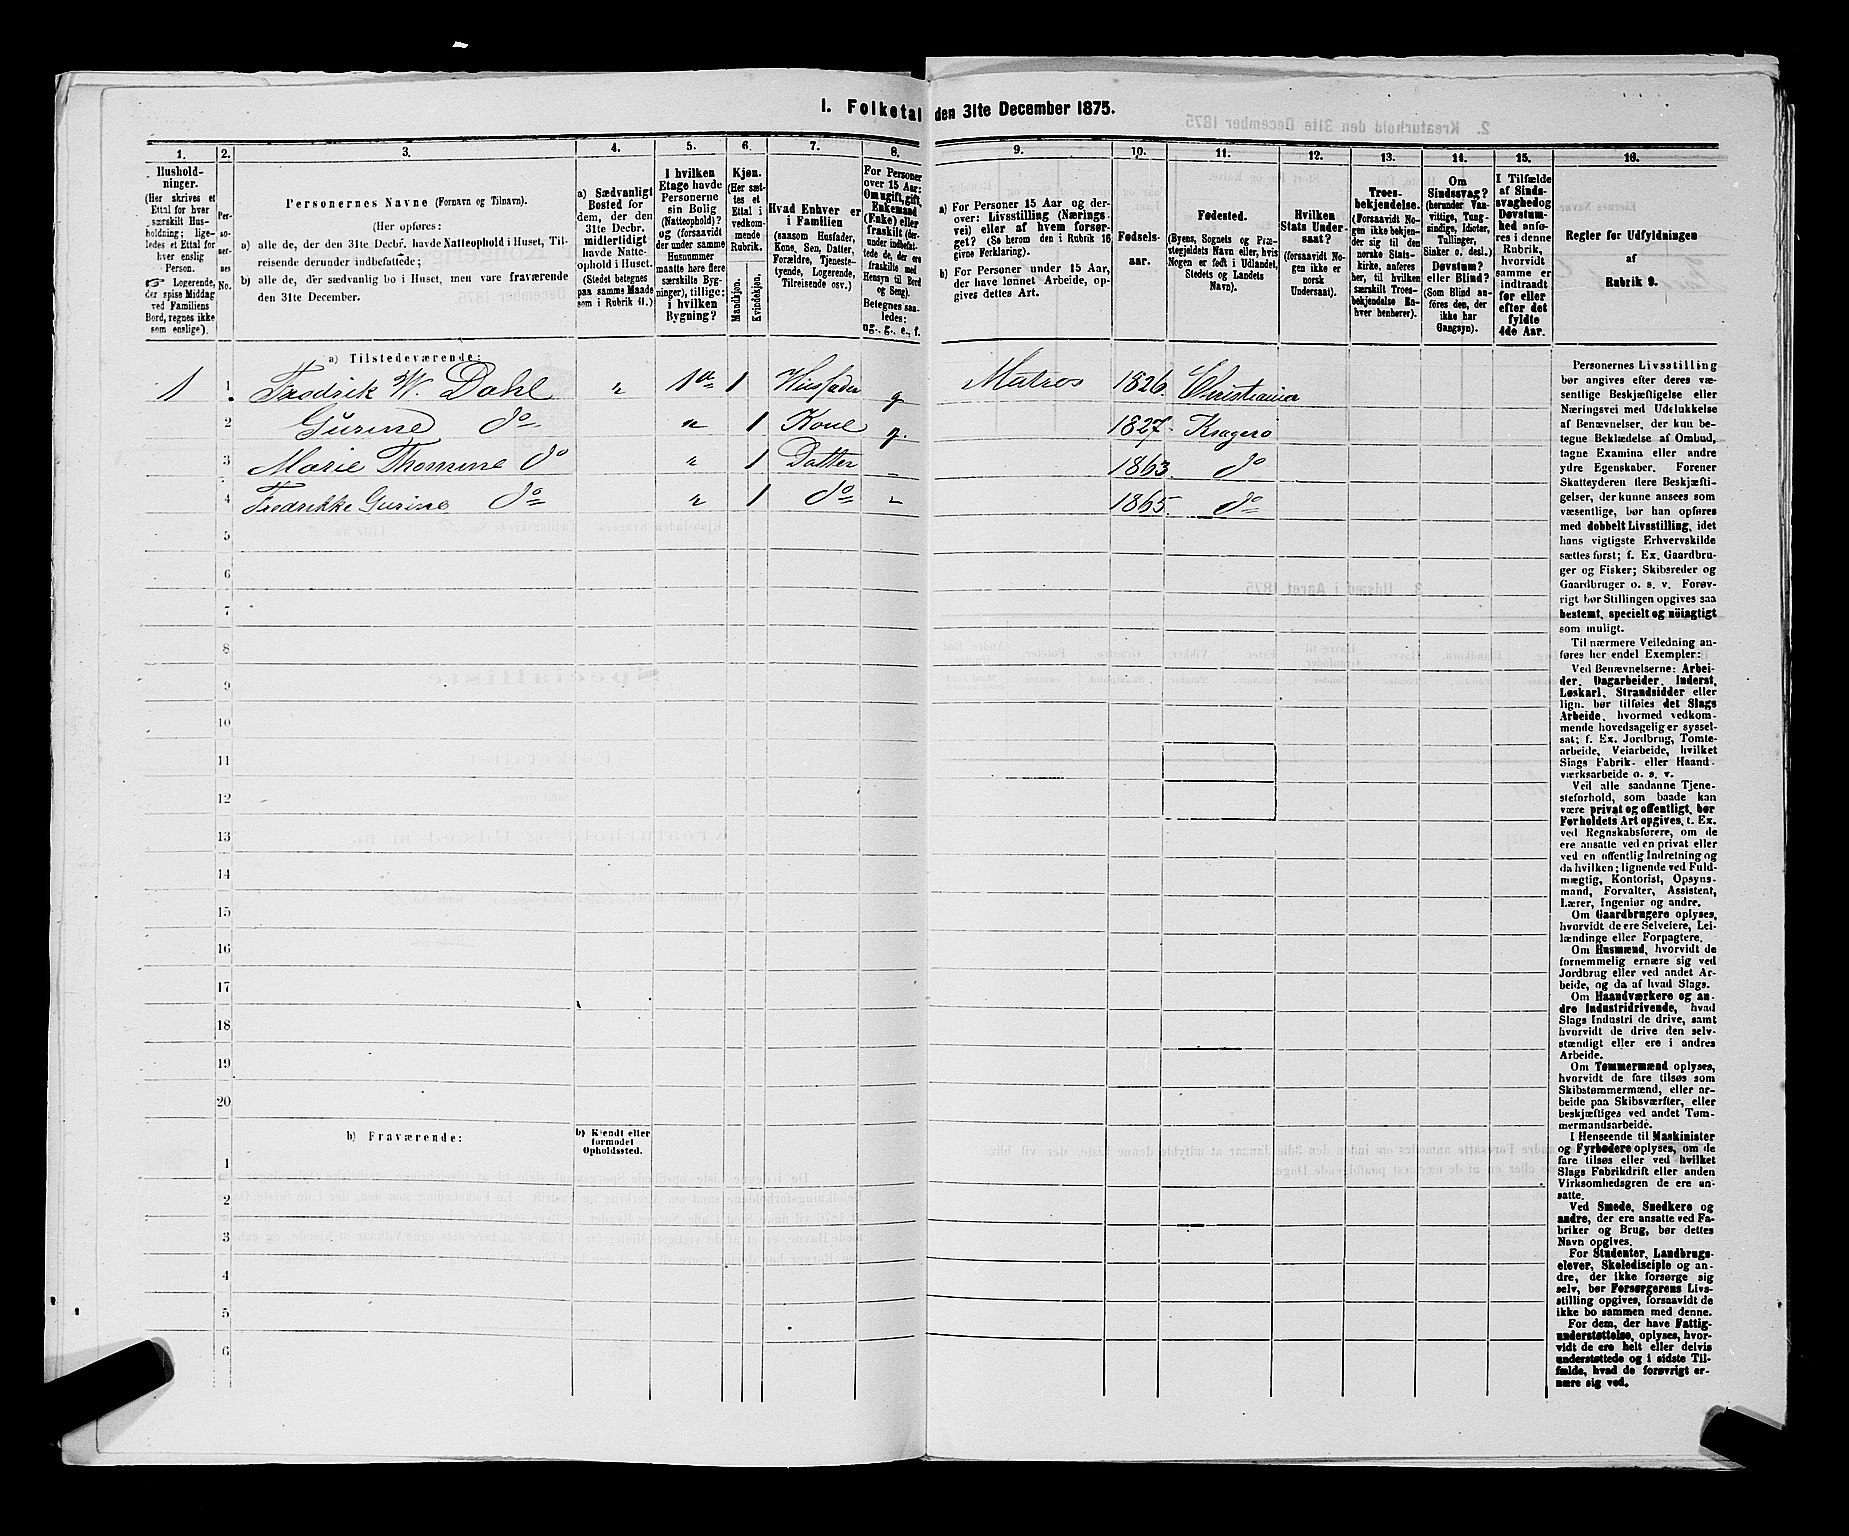 1. Folketal den 31te December 1875.
1. 2. 3. 4. 5. 6. 7. 8. 9. 10. 11. 12. 13. 14. 15. 16.
Hushold-
ninger.
(Her skrives et
Ettal for hver
særskilt Hus-
holdning; lige-
ledes et Ettal for
hver enslig
Person.
Logerende,
der spise Middag
ved Familiens
Bord, regnes ikke
som enslige).
Per-
so-
ner-
nes
No.
Personernes Navne (Fornavn og Tilnavn).
(Her opføres:
a) alle de, der den 31te Decbr. havde Natteophold i Huset, Til-
reisende derunder indbefattede;
b) alle de, der sædvanlig bo i Huset, men vare fraværende
den 31te December.
a) Sædvanligt
Bosted for
dem, der den
31te Decbr.
midlertidigt
havde Natte-
ophold i Huset.
(Stedet betegnes
paa samme Maade
som i Rubrik 11.)
I hvilken
Etage havde
Personerne
sin Bolig
(Natteophold)?
og (forsaavidt
der under samme
Husnummer
maatte høre flere
særskilte Byg-
ninger), tillige:
i hvilken
Bygning?
Kjøn.
(Her sæt-
tes et
Ettal i
vedkom-
mende
Rubrik.
Mandkjøn.
Kvindekjøn.
Hvad Enhver er
i Familien
(saasom Husfader,
Kone, Søn, Datter,
Forældre, Tjeneste-
tyende, Logerende,
Tilreisende osv.)
For Personer
over 15 Aar:
Om ugift, gift,
Enkemand
(Enke) eller
fraskilt (der-
under indbefat-
tede de, der ere
fraskilte med
Hensyn til Bord
og Seng).
Betegnes saa-
ledes:
ug., g., e., f.
a) For Personer 15 Aar og der-
over: Livsstilling (Nærings-
vei) eller af hvem forsør-
get? (Se herom den i Rubrik 16
givne Forklaring).
b) For Personer under 15 Aar,
der have lønnet Arbeide, op-
gives dettes Art.
Fødsels-
aar.
Fødested.
(Byens, Sognets og Præ-
stegjeldets Navn eller, hvis
Nogen er født i Udlandet,
Stedets og Landets
Navn).
Hvilken
Stats Under-
saat?
(forsaavidt No-
gen ikke er
norsk
Undersaat).
Troes-
bekjendelse.
(Forsaavidt No-
gen ikke bekjen-
der sig til den
norske Stats-
kirke, anføres
her, til hvilken
særskilt Troes-
bekjendelse En-
hver henhører).
Om
Sindssvag?
(herunder Van-
vittige, Tung-
sindige, Idioter,
Tullinger,
Sinker o. desl.)
Døvstum?
eller Blind?
(Som Blind an-
føres den, der
ikke har
Gangsyn).
I Tilfælde
af Sinds-
svaghed og
Døvstum-
hed anfø-
res i denne
Rubrik,
hvorvidt
samme er
indtraadt
før eller
efter det
fyldte
4de Aar.
Regler for Udfyldningen
af
Rubrik 9.
a) Tilstedeværende:
1 1 Fredrik W. Dahl " 1ste 1 Husfader g Matros 1826. Christiania
2 Gurine do " 1 Kone g. 1827. Kragerø
3 Marie Thomine do " 1 Datter " 1863. do
4 Fredrikke Gurine do " 1 do " 1865. do
5
6
7
8
9
10
11
12
13
14
15
16
17
18
19
20
b) Fraværende:
b) Kjendt eller
formodet
Opholdssted.
1
2
3
4
5
6
Personernes Livsstilling
bør angives efter deres væ-
sentlige Beskjæftigelse eller
Næringsvei med Udelukkelse
af Benævnelser, der kun be-
tegne Beklædelse af Ombud,
tagne Examina eller andre
ydre Egenskaber. Forener
Skatteyderen flere Beskjæfti-
gelser, der kunne ansees som
væsentlige, bør han opføres
med dobbelt Livsstilling, idet
hans vigtigste Erhvervskilde
sættes først; f. Ex. Gaardbru-
ger og Fisker; Skibsreder og
Gaardbruger o. s. v. Forøv-
rigt bør Stillingen opgives saa
bestemt, specielt og nöiagtigt
som muligt.
Til nærmere Veiledning an-
føres her endel Exempler:
Ved Benævnelserne: Arbei-
der, Dagarbeider, Inderst,
Løskarl, Strandsidder eller
lign. bør tilføies det Slags
Arbeide, hvormed vedkom-
mende hovedsagelig er syssel-
sat; f. Ex. Jordbrug, Tomte-
arbeide, Veiarbeide, hvilket
Slags Fabrik- eller Haand-
værksarbeide o. s. v.
Ved alle saadanne Tjene-
steforhold, som baade kan
være privat og offentligt, bør
Forholdets Art opgives, f. Ex.
ved Regnskabsførere, om de
ere ansatte ved en privat eller
ved en offentlig Indretning og
da hvilken; lignende ved Fuld-
mægtig, Kontorist, Opsyns-
mand, Forvalter, Assistent,
Lærer, Ingeniør og andre.
Om Gaardbrugere oplyses,
hvorvidt de ere Selveiere, Lei-
lændinge eller Forpagtere.
Om Husmænd, hvorvidt de
fornemmelig ernære sig ved
Jordbrug eller ved andet Ar-
beide, og da af hvad Slags.
Om Haandværkere og an-
dre Industridrivende, hvad
Slags Industri de drive, samt
hvorvidt de drive den selv-
stændigt eller ere i andres
Arbeide.
Om Tømmermænd oplyses,
hvorvidt de fare tilsøs som
Skibstømmermænd, eller ar-
beide paa Skibsværfter, eller
beskjæftiges ved andet Tøm-
mermandsarbeide.
I Henseende til Maskinister
og Fyrbødere oplyses, om de
fare tilsøs eller ved hvilket
Slags Fabrikdrift eller anden
Virksomhedsgren de ere an-
satte.
Ved Smede, Snedkere og
andre, der ere ansatte ved Fa-
briker og Brug, bør dettes
Navn opgives.
For Studenter, Landbrugs-
elever, Skoledisciple og an-
dre, der ikke forsørge sig
selv, bør Forsørgerens Livs-
stilling opgives, forsaavidt de
ikke bo sammen med denne.
For dem, der have Fattig-
understøttelse, oplyses, hvor-
vidt de ere helt eller delvis
understøttede og i sidste Til-
fælde, hvad de forøvrigt er-
nære sig ved.